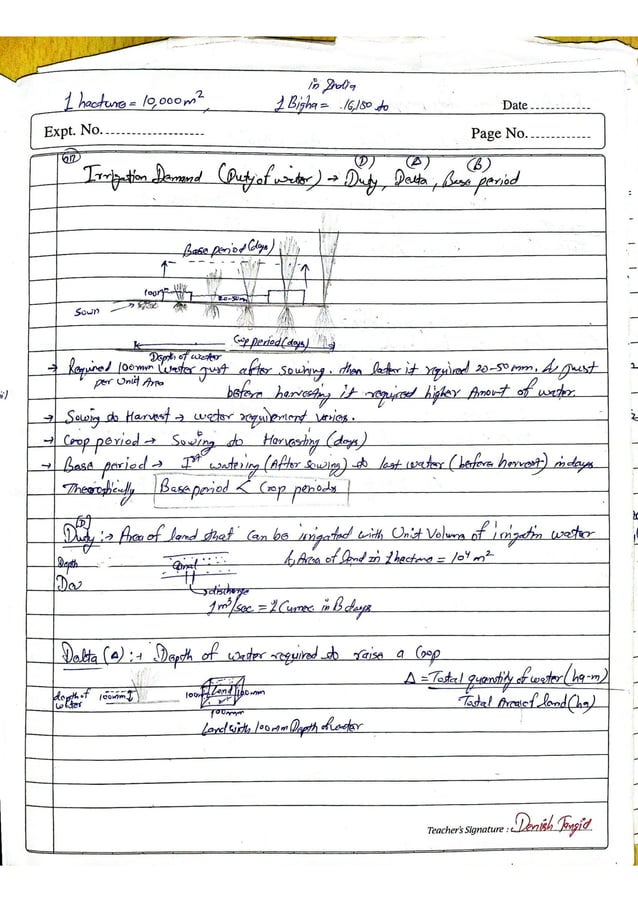 in India
1 hacture = 10,000 m², 1 Bigha = 16,150 to
Date
Expt. No.
Page No.
(D) (Δ) (B)
Irrigation Demand (Duty of water) → Duty, Delta, Base period
Base period (days)
100m
20-50mm
Sown
Crop period (days)
Depth of water
→ Required 100mm water just after sowing. than later it required 20-50 mm. & just
per Unit Area
before harvesting it required higher Amount of water.
→ Sowing to Harvest → water requirement varies.
→ Crop period → Sowing to Harvesting (days)
→ Base period → Ist watering (After sowing) to last water (before harvest) in days
Theoretically Base period < Crop periods
[D]
Duty :→ Area of land that can be irrigated with Unit Volum of irrigatin water
Depth
Canal
↳ Area of land in 1 hacture = 10⁴ m²
De
discharge
1 m³/sec = 1 Cumec in B days
Delta (Δ) :→ Depth of water required to raise a Crop
Δ = Total quantity of water (ha-m)
Total Area of land (ha)
depth of water
100mm
100m
Land
100mm
100mm
Land with 100mm Depth of water
Teacher's Signature : Danish Jangid